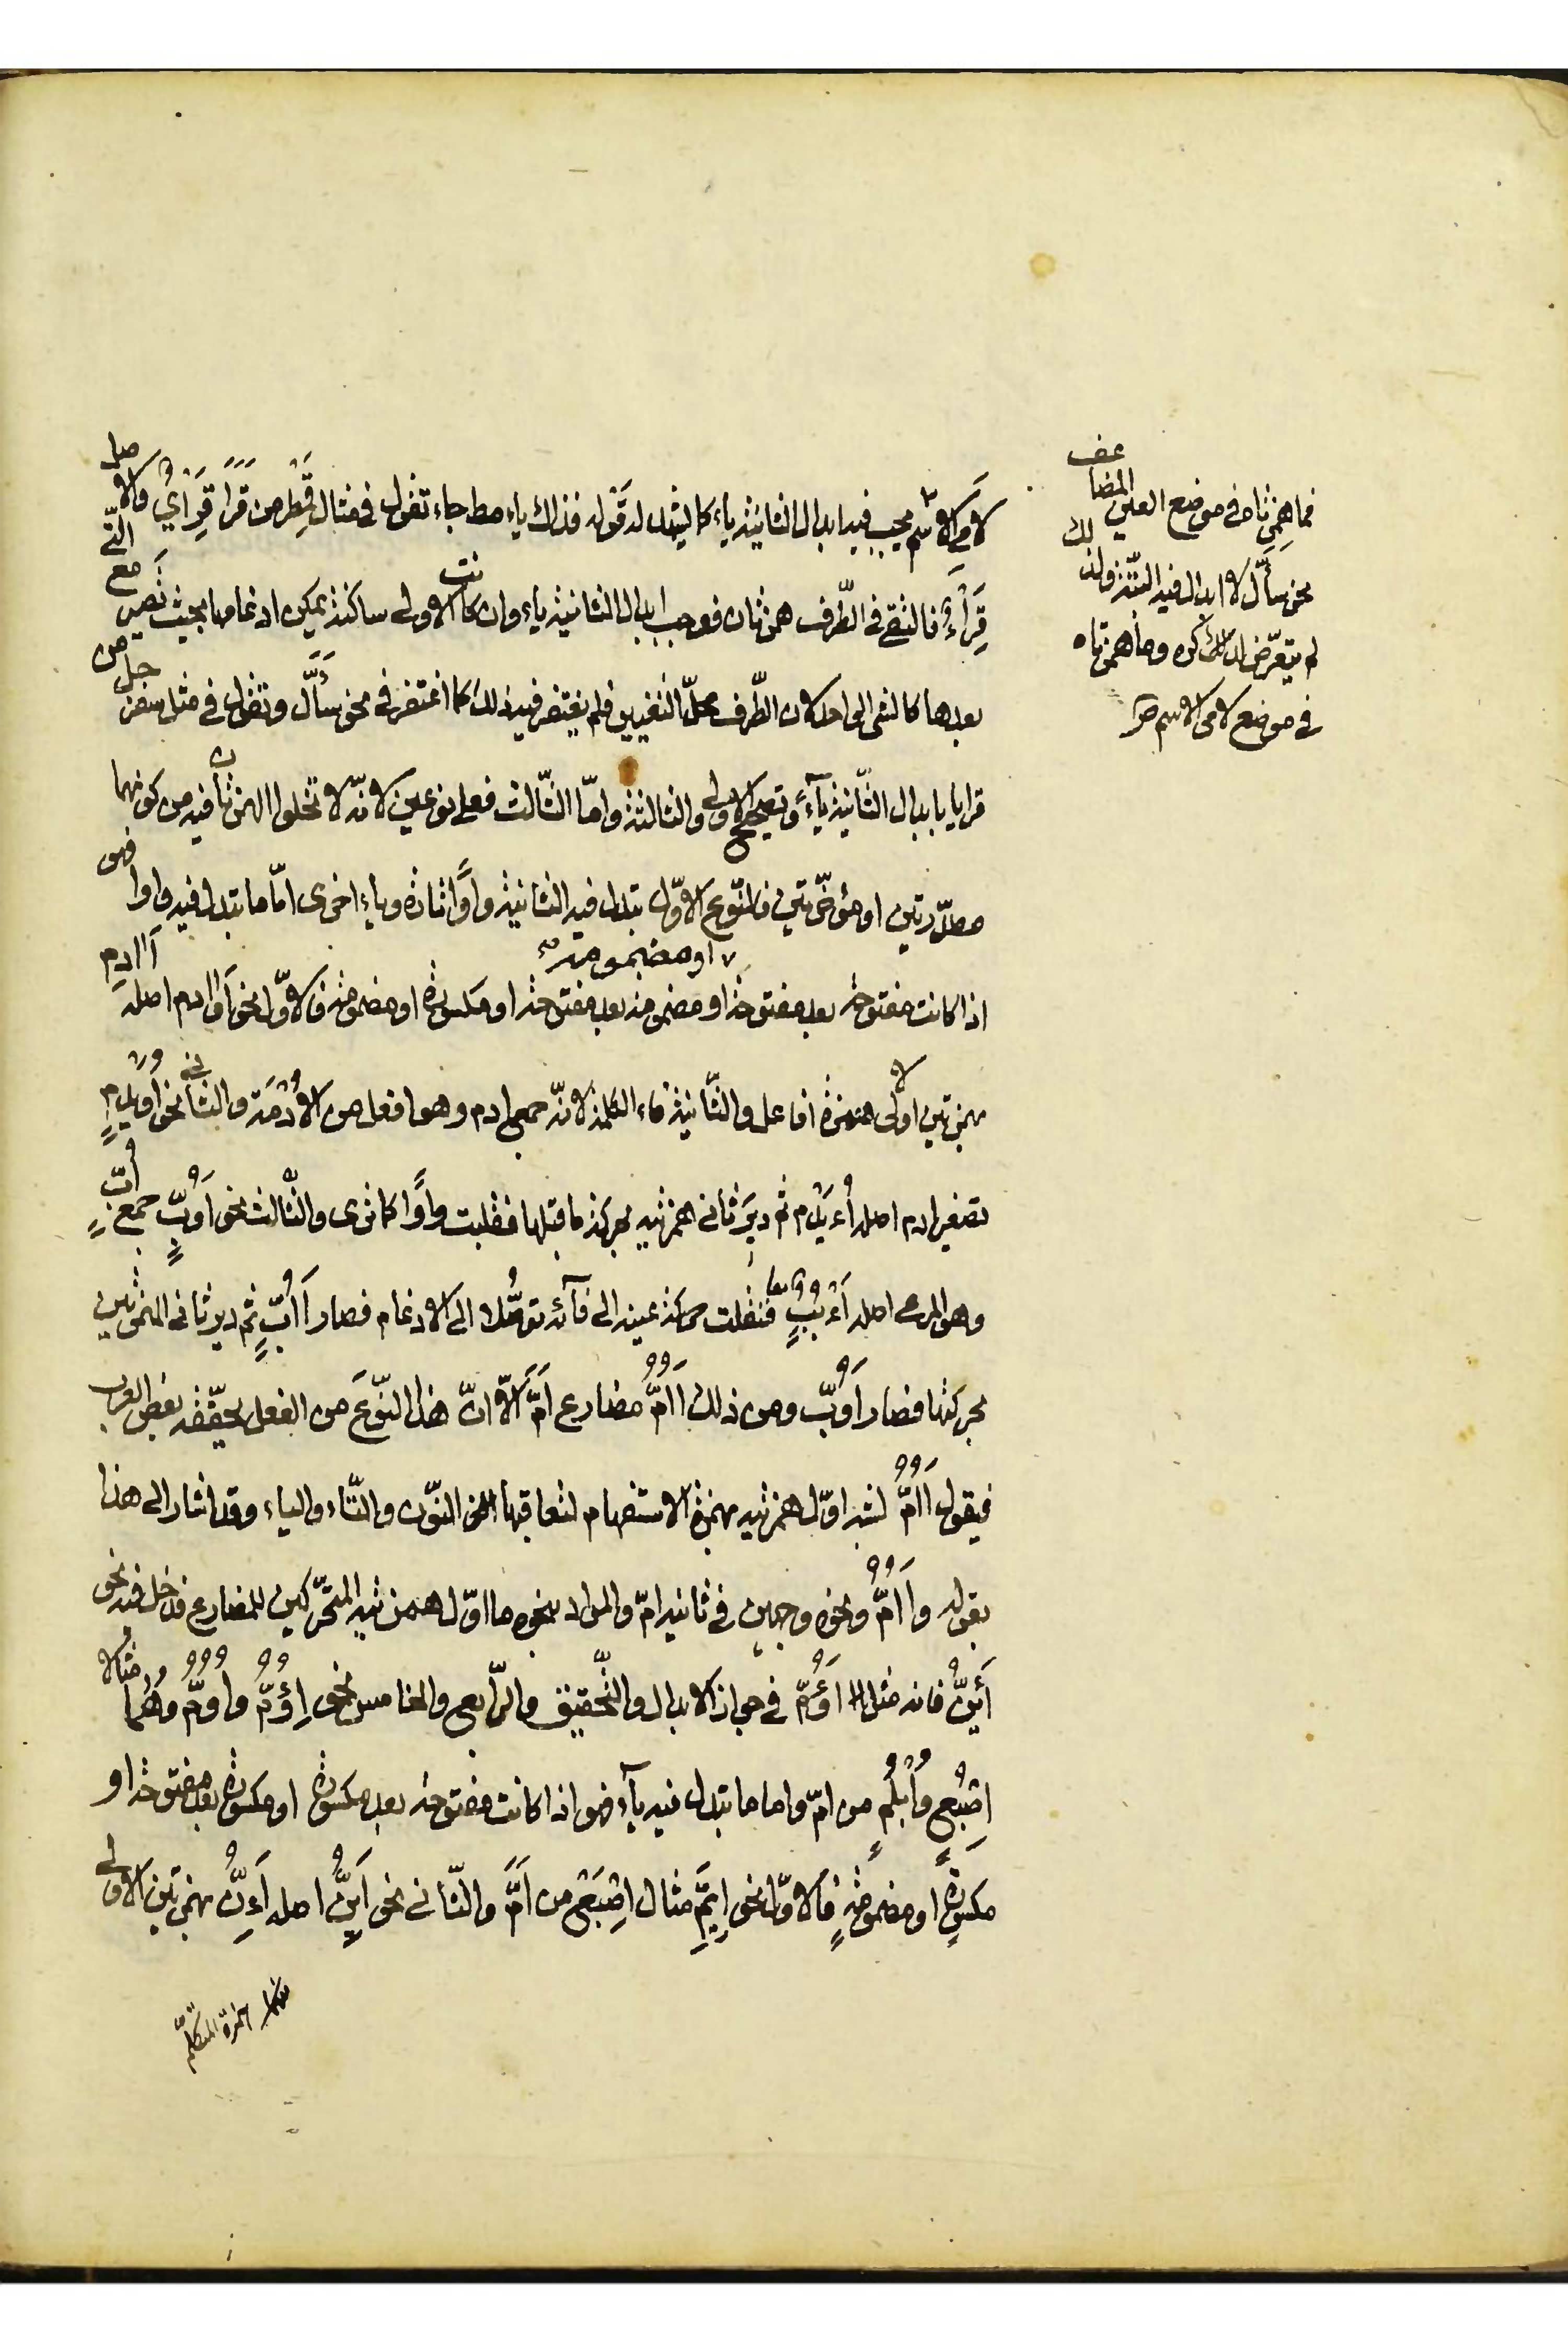 لامي الاسم يجب فيه ابدال الثانية ياء كما ليثد له قوله فذاك ياء مطلقا جاء تقول في مثال قِمَطْر من قَرَأَ قِرَأْيٌ والاصل
قِرَأْءٌ فالتقى في الطّرف همزتان فوجب ابدال الثانية ياء وان كانت الاولى ساكنة يمكن ادغامها بحيث تصير مع التي
بعدها كالشئ الواحد لان الطّرف محلّ التغيير فلم يغتفر فيه ذلك كما اغتفر في نحو سأَّل وتقول في مثل سفرجل من
قرايا بابدال الثّانية ياءً وتصحيح الاولى والثالثة وامّا الثّالث فعلى نوعين لانّه لا تخلوا الهمزتان فيه من كونهما
مصدّرتين او مؤخّرتين فالنّوع الاوّل تبدل فيه الثانية واوًا تارة وياء اخرى امّا ما تبدل فيه واوا فهو
اذا كانت مفتوحة بعد مفتوحة او مضمومة او مضمومة بعد مفتوحة او مكسورة او مضمومة فالاوّل نحو اَوَادم اصله أَاادم
بهمزتين اولى همزة افاعل والثّانية فاء الكلمة لانّه جمع ادم وهو افعل من الاُدْمَة والثاني نحو اُوَيْدِم
تصغير ادم اصله اُءَيْدِم ثم دبّر ثاني همزتيه بحركة ما قبلها فقلبت واوًا كما ترى والثّالث نحو اَوُبٍّ جمع اَبٍّ
وهو المرعى اصله اَءْبُبٌ فنقلت حركة عينه الى فآئه توصُّلا الى الادغام فصار اَاُبٍّ ثم دبر ثاني الهمزتين
بحركتها فصار اَوُبّ ومن ذلك اَاُمُّ مضارع اَمَّ الاّ انّ هذا النّوعَ من الفعل يحقّقه بعض العرب
فيقول اَاُمُّ لشبه اوّل همزتيه بهمزة الاستفهام لتعاقبها النّون والتّاء والياء وقد اشار الى هذا
بقوله واَاُمُّ ونحوه وجهين في ثانيه امّ والمراد بنحوه ما اوّل همزتيه المتحرّكتين للمضارع فدخل فيه نحو
أَئِنُّ فانه مثل اَؤُمّ في جواز الابدال والتّحقيق والرّابع والخامس نحو اِوُمٌّ واُوُمٌّ وهُما مثالا
اِصْبُعٍ واُبْلُمٍ من امّ واما ما تبدل فيه ياءً فهو اذا كانت مفتوحة بعد مكسورة او مكسورة بعد مفتوحة او
مكسورةٍ او مضمومةٍ فالاوّل نحو اِيَمٍّ مثال اِصْبَعٍ من اَمَّ والثّاني نحو اَيِنُّ اصله اَءِنُّ بهمزتين الاولى
منهما همزة المتكلّم
فما همزتاه في موضع العين المضاعف
نحو سأَّل لا ابدال فيه البتّة ولذلك
لم يتعرّض لذلك ذكره وما همزتاه
في موضع لامي الاسم